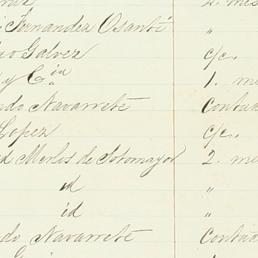 2. mes
Fernandez Osante "
Galvez c/c.
y Cía 1. m
do Navarrete Contan
Lopez c/c.
d Merlos de Sotomayor 2. me
id "
id "
do Navarrete Contan